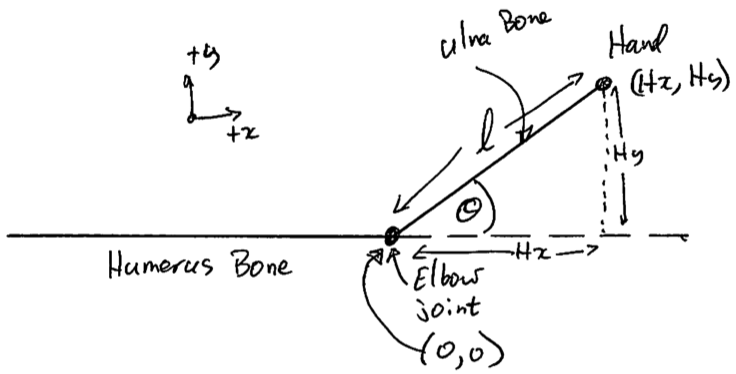 Ulna Bone
Hand
(Hx, Hy)
+y
+x
l
Hy
Θ
Hx
Humerus Bone
Elbow
joint
(0,0)